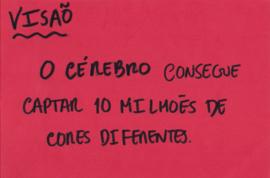 VISAÕ
O CÉREBRO CONSEGUE
CAPTAR 10 MILHOÊS DE
CORES DIFERENTES.